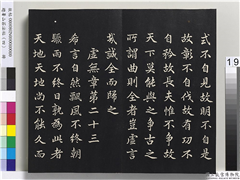 式不自見故明不自是
故彰不自伐故有功不
自矜故長夫惟不爭故
天下莫能與之爭古之
所謂曲則全者豈虛言
哉誠全而歸之
虛無章第二十三
希言自然飄風不終朝
驟雨不終日孰為此者
天地天地尚不能久而
19